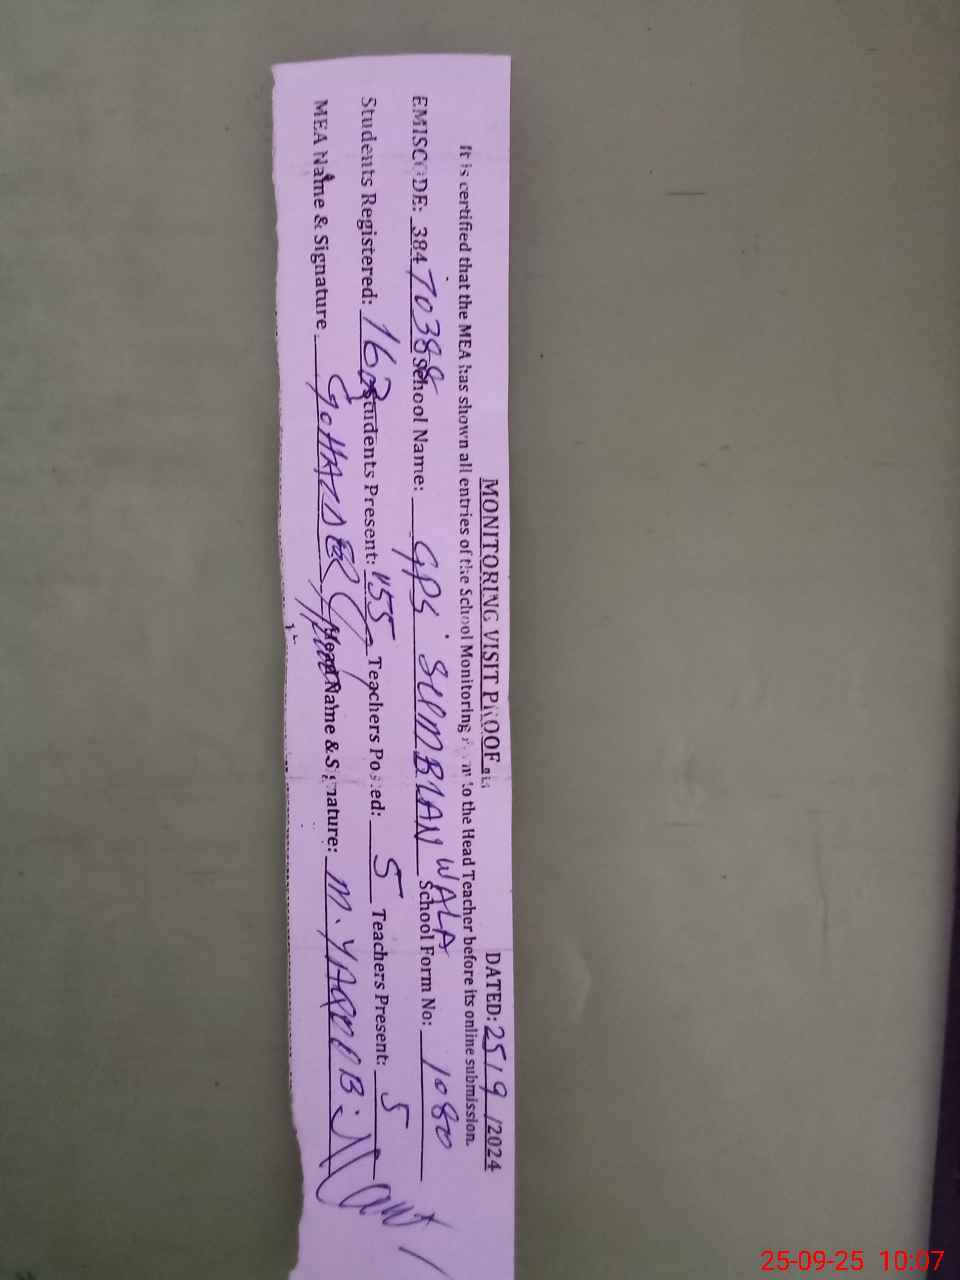 MONITORING VISIT PROOF DATED: 25/9/2024
It is certified that the MEA has shown all entries of the School Monitoring to the Head Teacher before its online submission.
EMISCODE: 38470388 School Name: GPS SUMBLAN WALA School Form No: 1080
Students Registered: 162 Students Present: 155 Teachers Posted: 5 Teachers Present: 5
MEA Name & Signature Head Name & Signature: M. YAQOOB
25-09-25 10:07